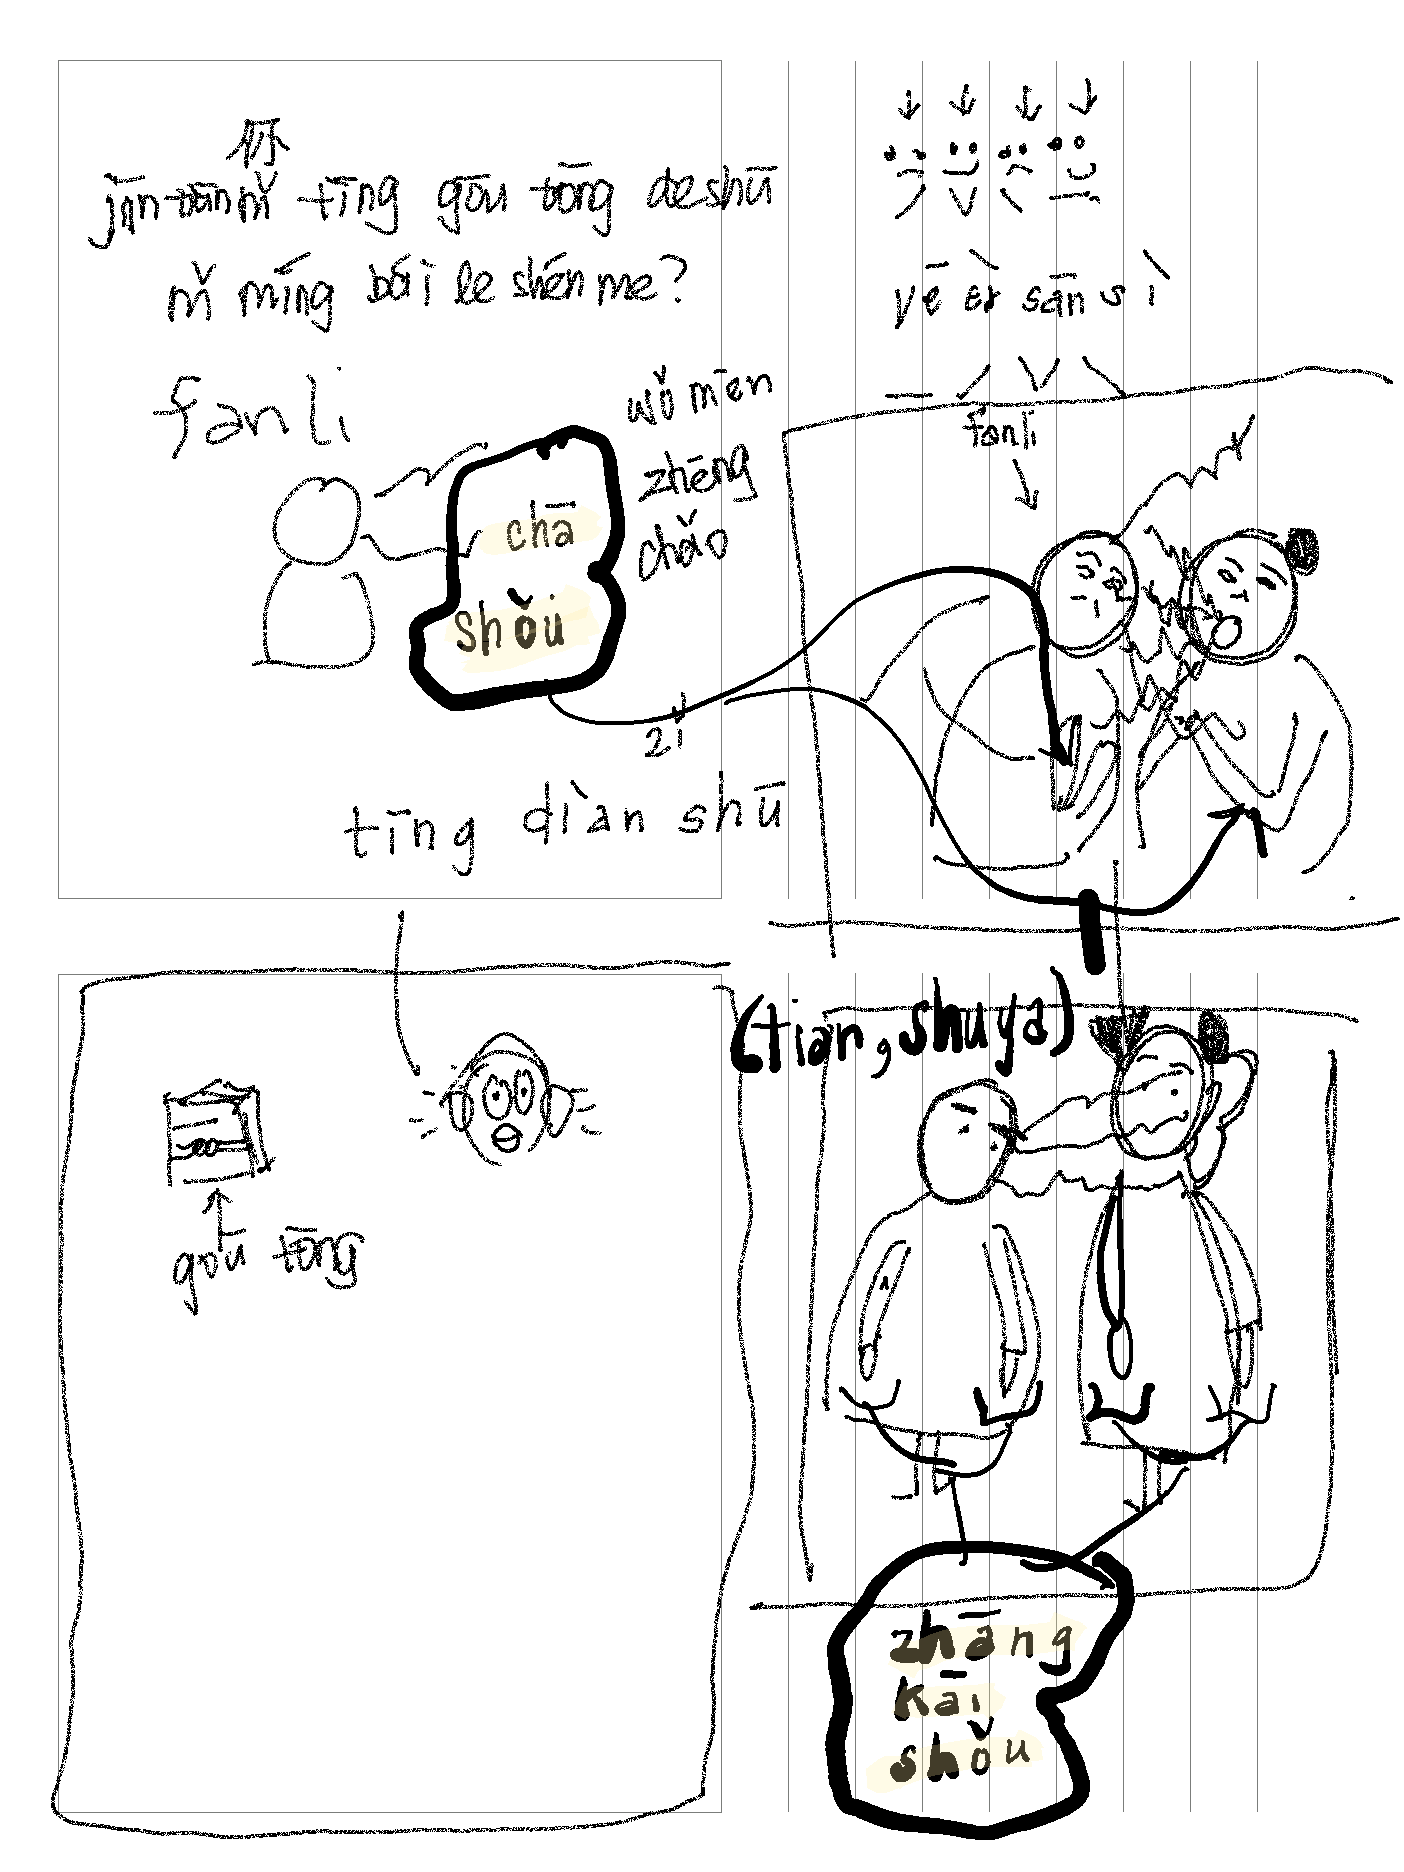 你
jīn tiān nǐ tīng gōu tōng de shū
nǐ míng bái le shén me?
fan li
wǒ mēn
zhēng
chǎo
chā
shǒu
zì
tīng diàn shū
yē èr sān sì
fanli
(tian, shuya)
gōu tōng
zhāng
kāi
shǒu